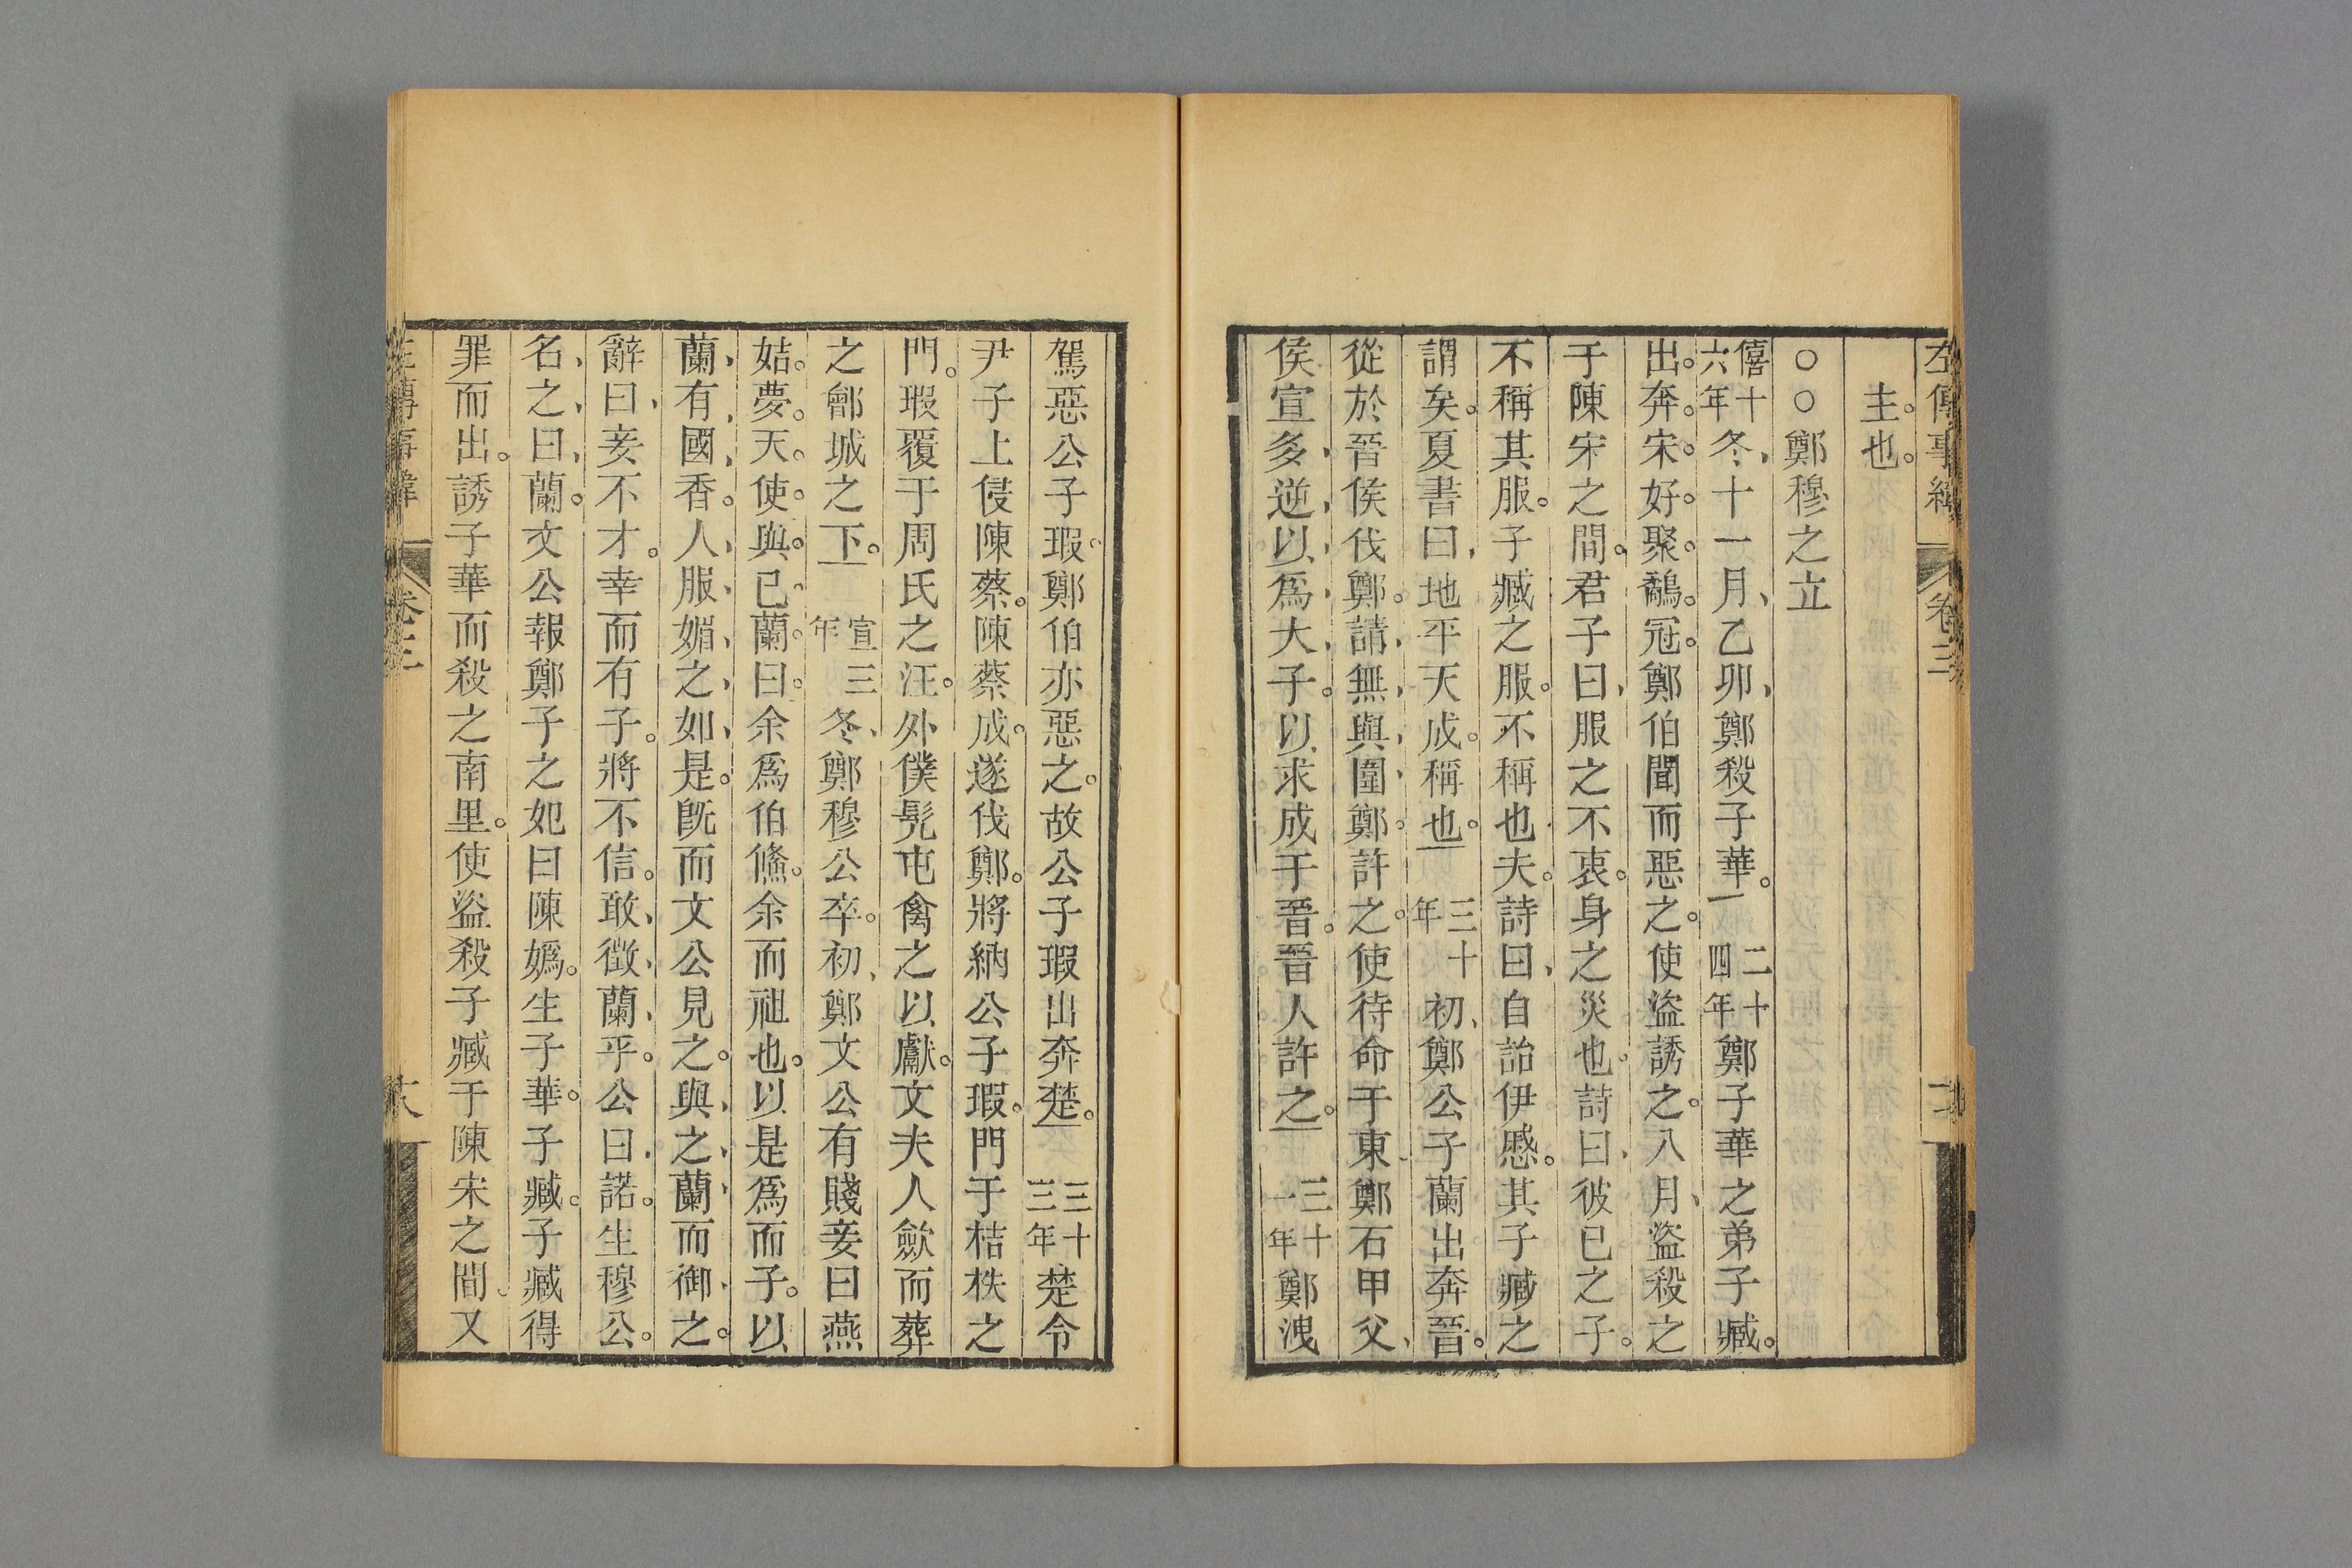 左傳事緯 卷三
主也。
○○鄭穆之立
僖十六年冬、十一月、乙卯、鄭殺子華。二十四年鄭子華之弟子臧。
出。奔。宋。好。聚。鷸。冠。鄭伯聞而惡之。使盜誘之。八月、盜殺之
于陳宋之間。君子曰、服之不衷。身之災也。詩曰、彼已之子。
不稱其服。子臧之服。不稱也夫。詩曰、自詒伊慼。其子臧之
謂矣。夏書曰、地平天成。稱也。三十年初、鄭公子蘭出奔晉。
從於晉侯伐鄭。請、無、與、圍、鄭。許之。使待命于東、鄭石甲父、
侯宣多、逆、以、爲、大、子。以求成于晉。晉人許之。三十一年鄭洩
駕惡公子瑕。鄭伯亦惡之。故公子瑕出奔楚。三十三年楚令
尹子上侵陳蔡。陳蔡成。遂伐鄭。將納公子瑕。門于桔柣之
門。瑕覆于周氏之汪。外僕髡屯禽之以獻。文夫人斂而葬
之鄶城之下。宣三年冬、鄭穆公卒。初、鄭文公有賤妾曰燕
姞。夢。天。使。與。已。蘭。曰。余爲伯鯈。余而祖也。以是爲而子。以
蘭、有、國、香。人、服、媚、之、如、是。旣而文公見之。與、之、蘭、而御、之。
辭曰、妾不才。幸而有子。將不信。敢、徵、蘭、乎。公曰、諾。生穆公。
名、之、曰、蘭。文公報鄭子之妃曰陳嬀。生子華。子臧。子臧得
罪而出。誘子華而殺之南里。使盜殺子臧于陳宋之間、又
左傳事緯 卷三 六